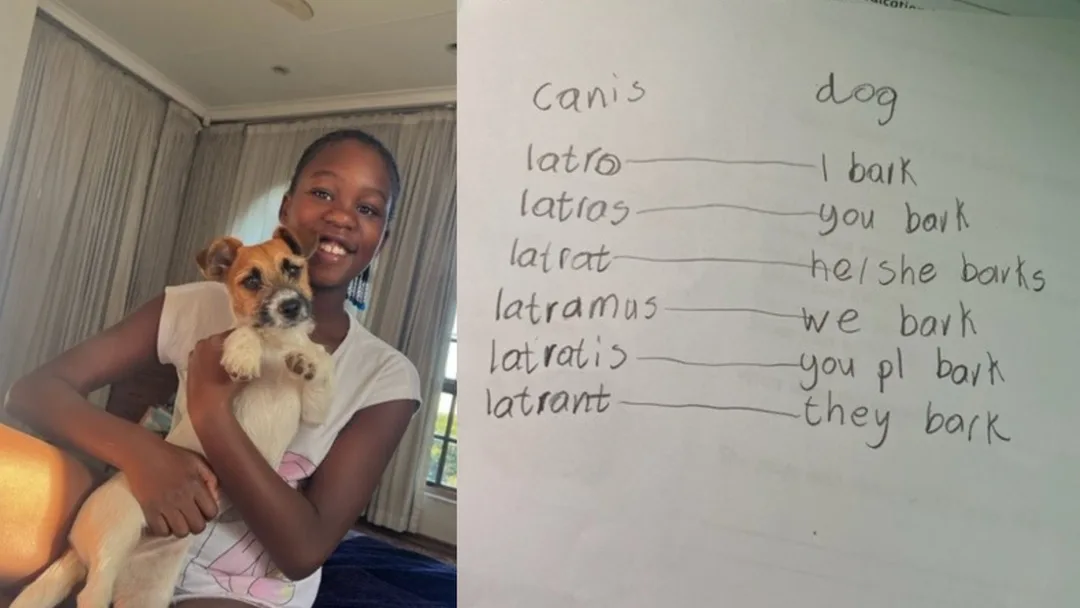 canis dog
latro I bark
latras you bark
latrat he/she barks
latramus we bark
latratis you pl bark
latrant they bark